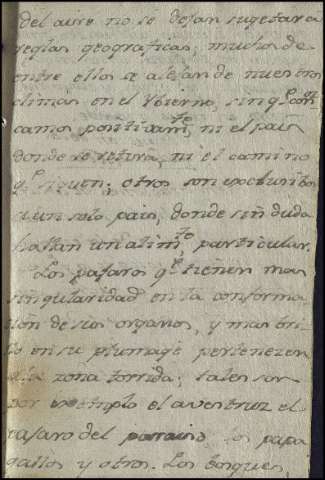 del aire no se dejan sugetar a
reglas geograficas, muchos de
entre ellos se alejan de nuestros
climas en el Ybierno, sin q.e
camos positivam.te, ni el pais
donde se retira, ni el camino
q.e siguen; otros son exclusibos
a un solo pais, donde sin duda
hallan un alim.to particular.
Los pajaros q.e tienen mas
singularidad en la conforma
cion de sus organos, y mas bri
llo en su plumage pertenezen
a la zona torrida; tales son
por exemplo el avestruz el
pajaro del paraiso los papa
gallos y otros. Los bosques,